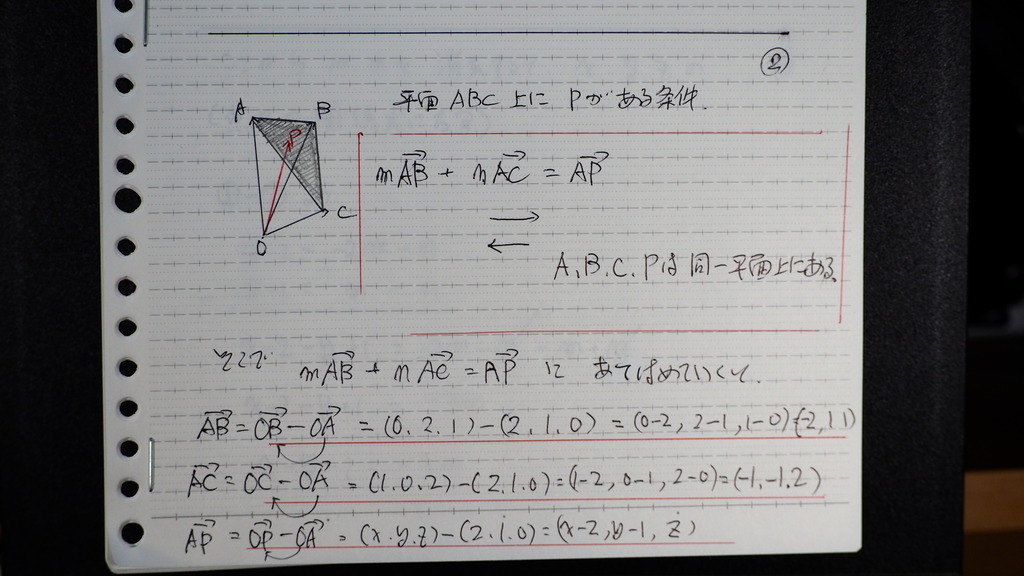 ②
平面 ABC 上に Pがある条件.
A
B
P
C
O
mAB→ + nAC→ = AP→
→
←
A, B, C, Pは同一平面上にある.
そこで mAB→ + nAC→ = AP→ に あてはめていくて.
AB→ = OB→ - OA→ = (0, 2, 1) - (2, 1, 0) = (0-2, 2-1, 1-0) (-2, 1 1)
AC→ = OC→ - OA→ = (1, 0, 2) - (2, 1, 0) = (1-2, 0-1, 2-0) = (-1, -1, 2)
AP→ = OP→ - OA→ = (x, y, z) - (2, 1, 0) = (x-2, y-1, z)